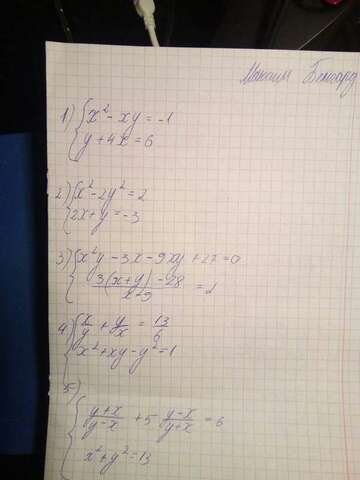 Максим
1) { x² - xy = -1
y + 4x = 6
2) { x² - 2y² = 2
2x + y = -3
3) { x²y - 3x - 9xy + 27 = 0
3(x+y) - 28 / x-9 = 2
4) { x/y + y/x = 13/6
x² + xy - y² = 1
5) { y+x / y-x + 5 y-x / y+x = 6
x² + y² = 13